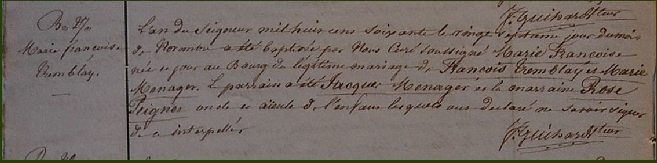 F. Guihard Vteur
Bs 27e
Marie françoise
Tremblay.
L'an du Seigneur mil huit cens soixante le vingt septieme jour du mois
de Novembre a été baptisée par Nous Curé soussigné Marie Francoise
née ce jour au Bourg du légitime mariage de Francois Tremblay et Marie
Menager. Le parrain a été Jacques Menager et la marraine Rose
Peignés oncle et aïeule de l'enfant lesquels ont déclaré ne savoir signer
de ce interpellés
F. Guihard Vteur